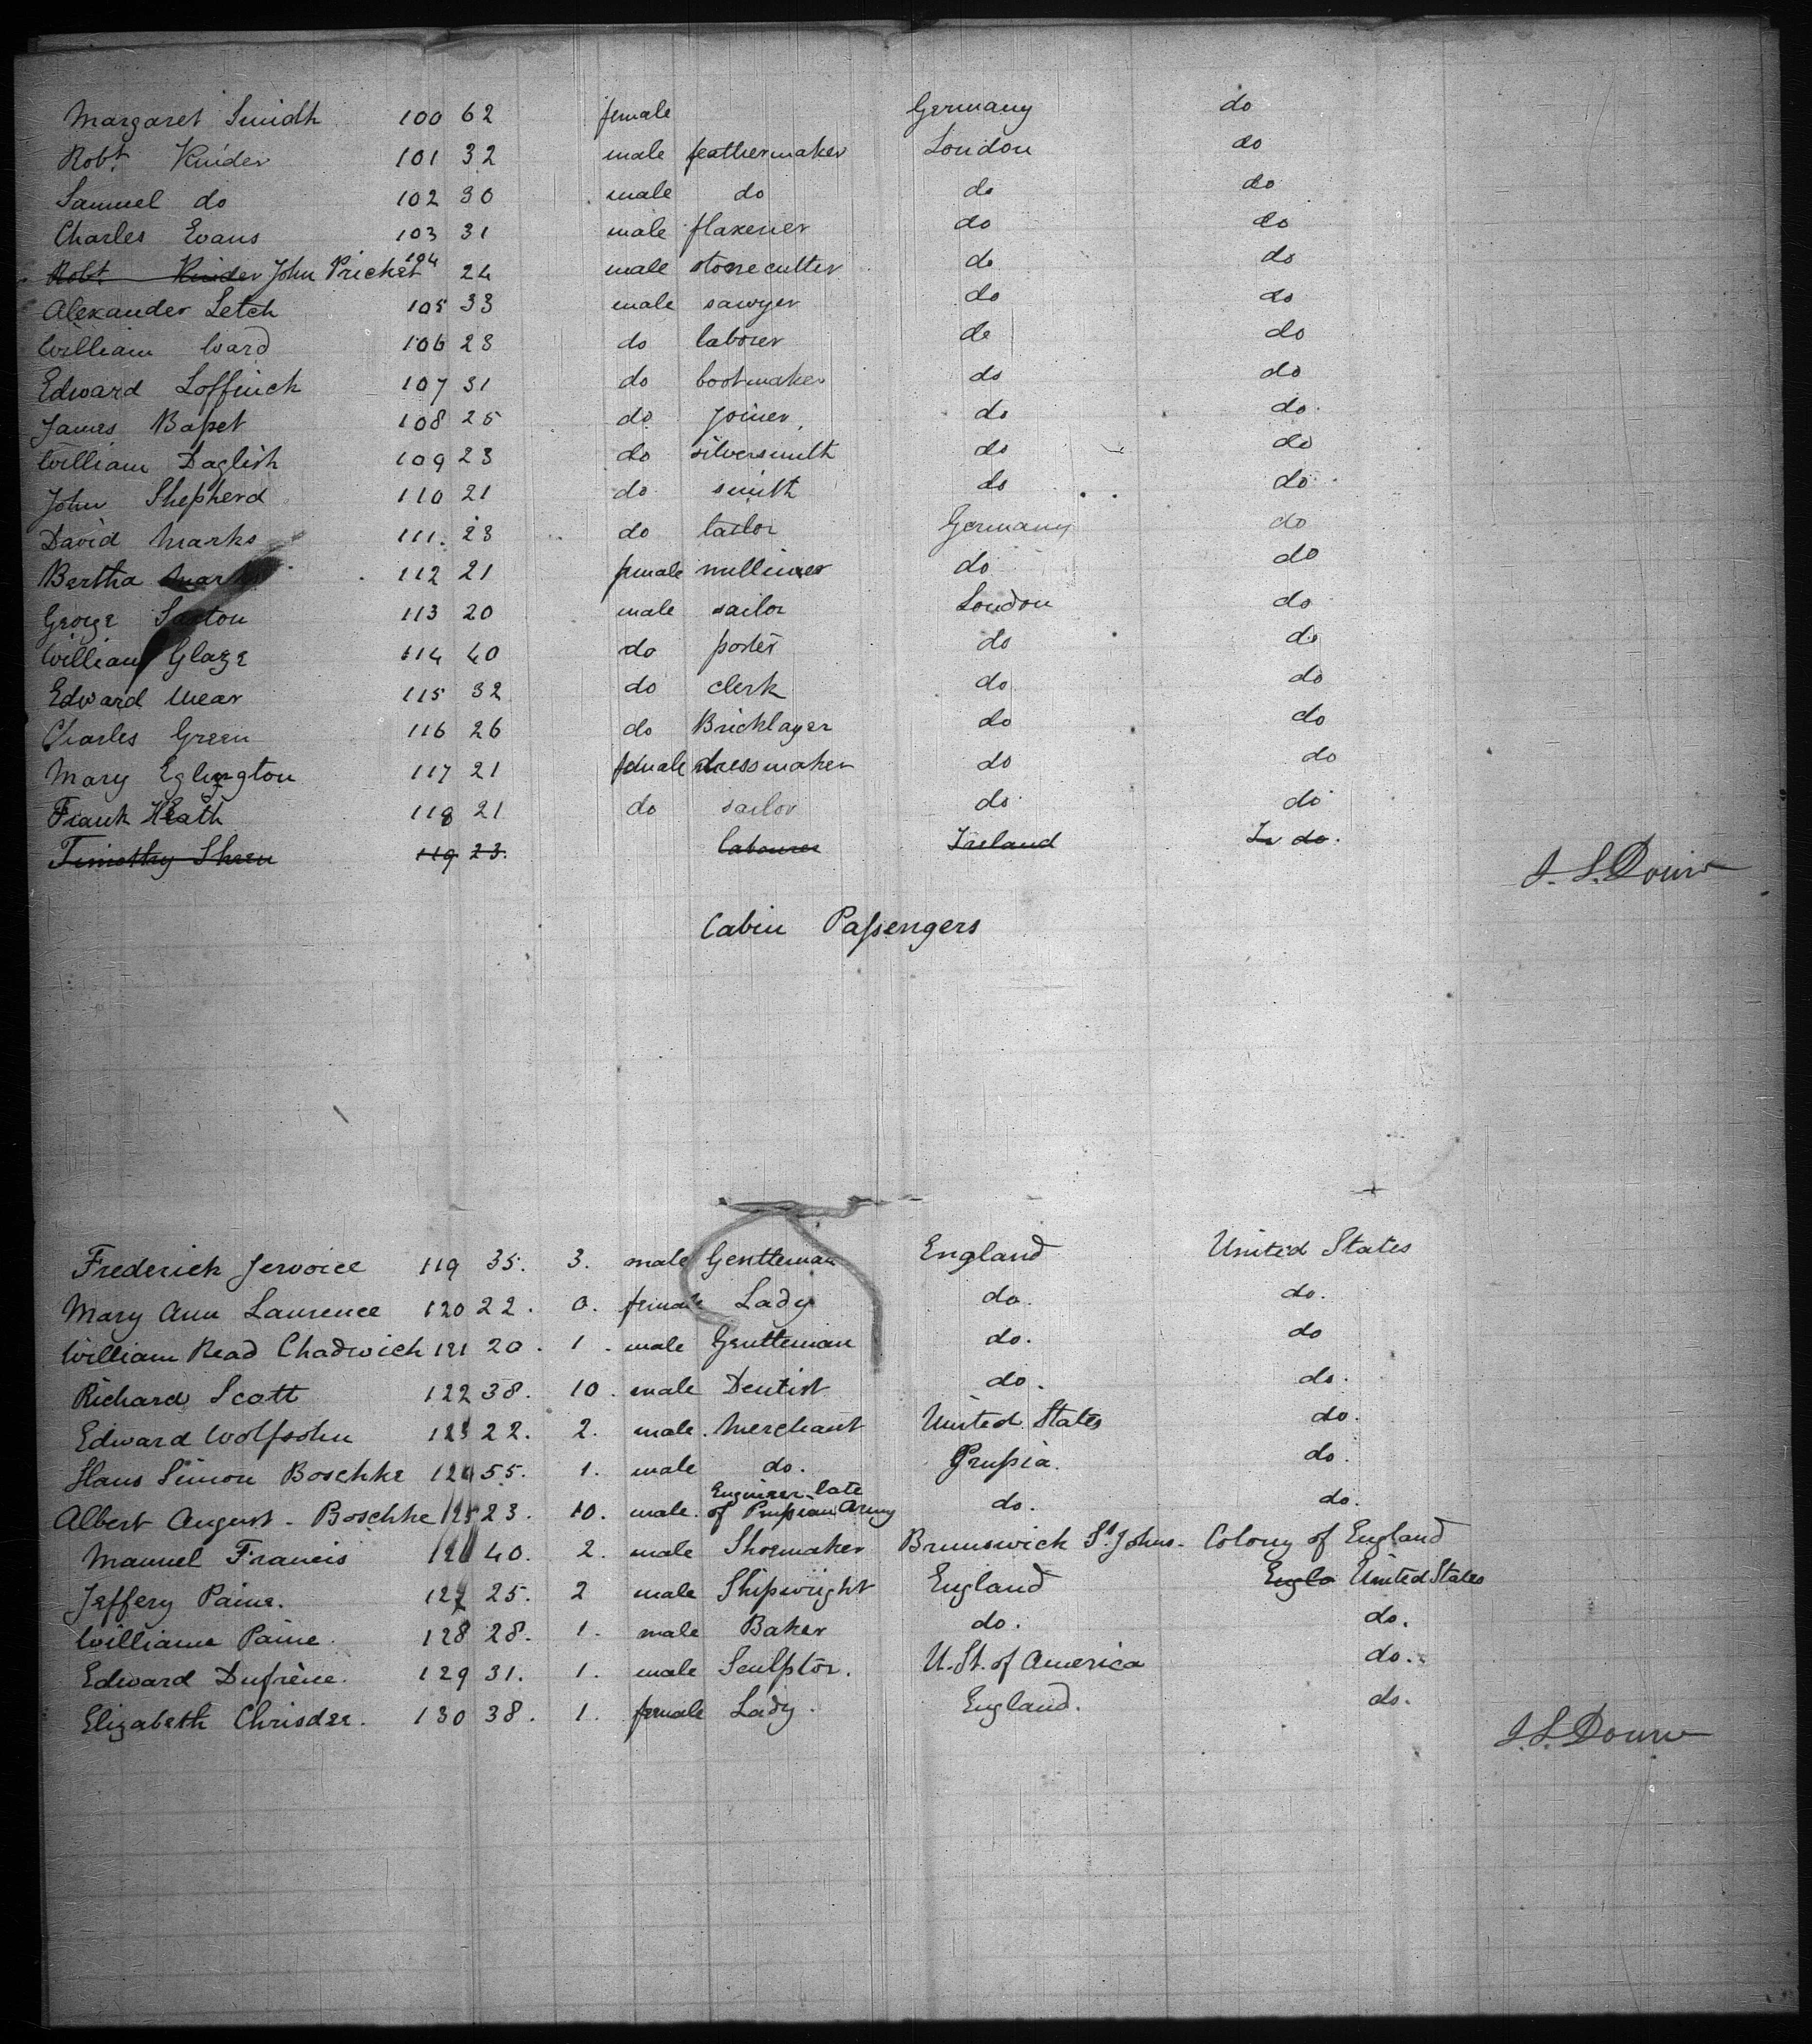 Margaret Smidh 100 62 female Germany do
Robt Kinder 101 32 male feathermaker London do
Samuel do 102 30 male do do do
Charles Evans 103 31 male flaxener do do
Robt Kinder John Pricket 104 24 male stonecutter do do
Alexander Letch 105 33 male sawyer do do
William Ward 106 28 do laborer do do
Edward Loffinck 107 31 do bootmaker do do
James Baſset 108 25 do joiner do do
William Daglish 109 23 do silversmith do do
John Shepherd 110 21 do smith do do
David Marks 111. 23 do tailor Germany do
Bertha Marks 112 21 female milliner do do
George Saxton 113 20 male sailor London do
William Glaze 114 40 do porter do do
Edward Wear 115 32 do clerk do do
Charles Green 116 26 do Bricklayer do do
Mary Eglington 117 21 female dressmaker do do
Frank Heath 118 21 do sailor do do
Timothy Sheen 119 23. labourer Ireland do.
Cabin Paſsengers
Frederick Jervoice 119 35. 3. male Gentleman England United States
Mary Ann Laurence 120 22. 0. female Lady do. do.
William Read Chadwick 121 20. 1. male Gentleman do. do
Richard Scott 122 38. 10. male Dentist do. do.
Edward Wolfsohn 123 22. 2. male. Merchant United States do.
Hans Simon Boschke 124 55. 1. male do. Pruſsia. do.
Engineer late
Albert August - Boschke 125 23. 10. male. of Pruſsian Army do. do.
Manuel Francis 126 40. 2. male Shoemaker Brunswick St. Johns - Colony of England
Jeffery Paine. 127 25. 2 male Shipwright England Engla United States
Williame Paine. 128 28. 1. male Baker do. do.
Edward Dufrène. 129 31. 1. male Sculptor. U. St. of America do.
Elizabeth Chrisdee. 130 38. 1. female Lady. England. do.